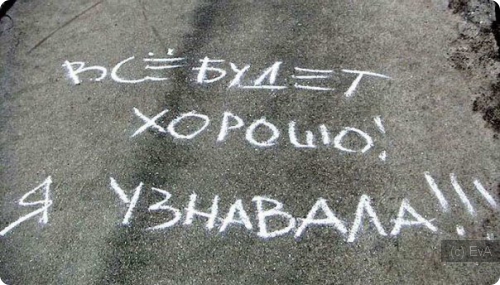 ВСЁ БУДЕТ
ХОРОШО!
Я УЗНАВАЛА!!!
(c) EvA